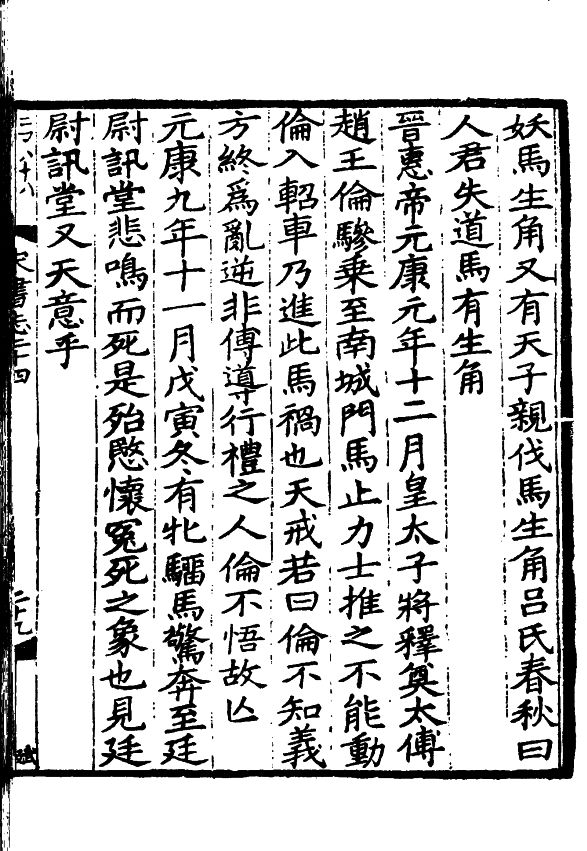 妖馬生角又有天子親伐馬生角呂氏春秋曰
人君失道馬有生角
晉惠帝元康元年十二月皇太子將釋奠太傅
趙王倫驂乗至南城門馬止力士推之不能動
倫入軺車乃進此馬禍也天戒若曰倫不知義
方終爲亂逆非傅導行禮之人倫不悟故亾
元康九年十一月戊寅冬有牝騮馬驚奔至廷
尉訊堂悲鳴而死是殆愍懷冤死之象也見廷
尉訊堂又天意乎
宋書志二十四
二十九